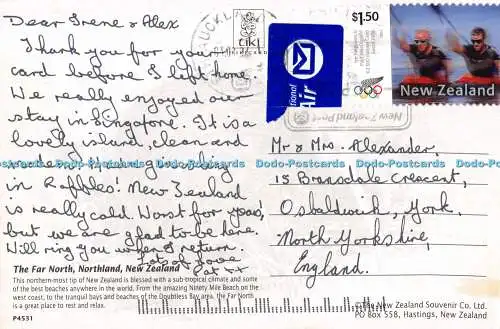 Dear Irene & Alex
Thank you for your
card before I left home.
We really enjoyed our
stay in Singapore. It is a
lovely island, clean and
in Raffles! New Zealand
is really cold. Worst for years,
but we are glad to be here.
Will ring you when I return.
Lots of love
Pat xx
The Far North, Northland, New Zealand
This northern-most tip of New Zealand is blessed with a sub-tropical climate and some
of the best beaches anywhere in the world. From the amazing Ninety Mile Beach on the
west coast, to the tranquil bays and beaches of the Doubtless Bay area, the Far North
is a great place to rest and relax.
P4531
AUCKLA
$1.50
New Zealand
Air
New Zealand Post
Mr & Mrs. Alexander,
15 Bransdale Crescent,
Osbaldwick, York,
North Yorkshire,
England.
© The New Zealand Souvenir Co. Ltd.
PO Box 558, Hastings, New Zealand
Dodo-Postcards Dodo-Postcards Dodo-Postcards Dodo-Postcards